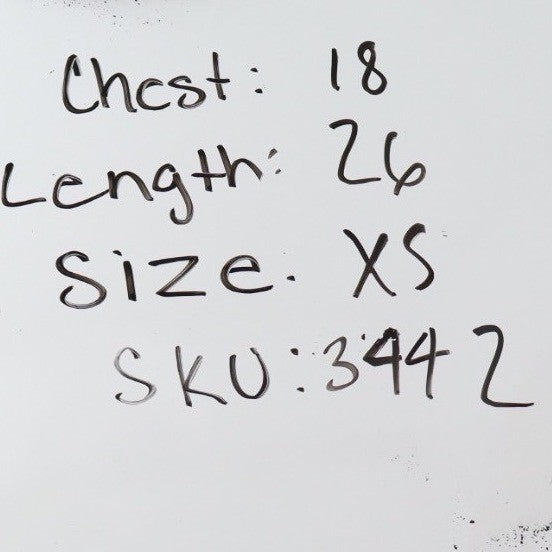 Chest: 18
Length: 26
Size. XS
SKU: 3442